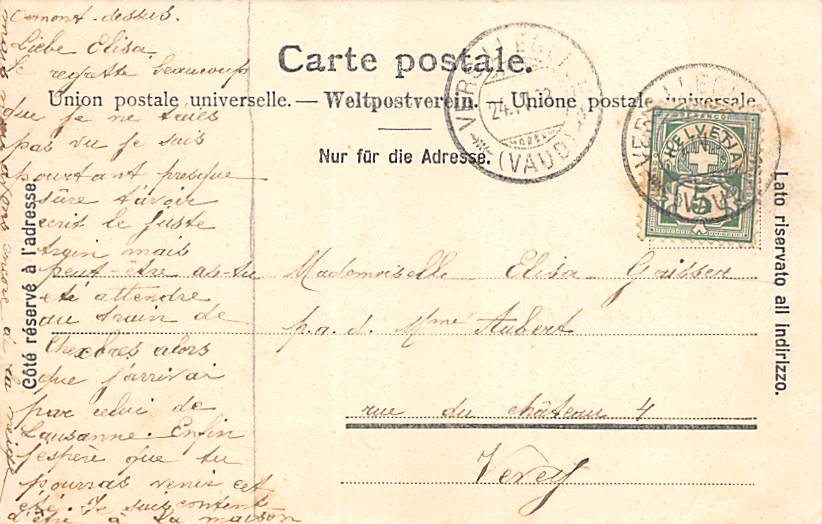 Carte postale.
Union postale universelle. — Weltpostverein. — Unione postale universale
Nur für die Adresse.
Côté réservé à l'adresse.
Lato riservato all indirizzo.
(VAUD)
HELVETIA
5
dessus.
Liebe Elisa
Je regrette beaucoup
que je ne t'aies
pas vu je suis
pourtant presque
sûre t'avoir
écrit le juste
mais
peut-être as-tu
été attendre
au train de
Chexbres alors
que j'arrivai
par celui de
Lausanne. Enfin
j'espère que tu
pourras venir cet
été. Je suis content
d'être à la maison
Mademoiselle Elisa
p. a. d. Mme Aubert
rue du château 4
Vevey